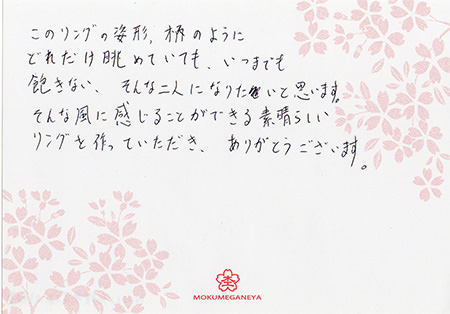 このリングの姿形、柄のように
どれだけ眺めていても、いつまでも
飽きない、そんな二人になりたいと思います。
そんな風に感じることができる素晴らしい
リングを作っていただき、ありがとうございます。
MOKUMEGANEYA